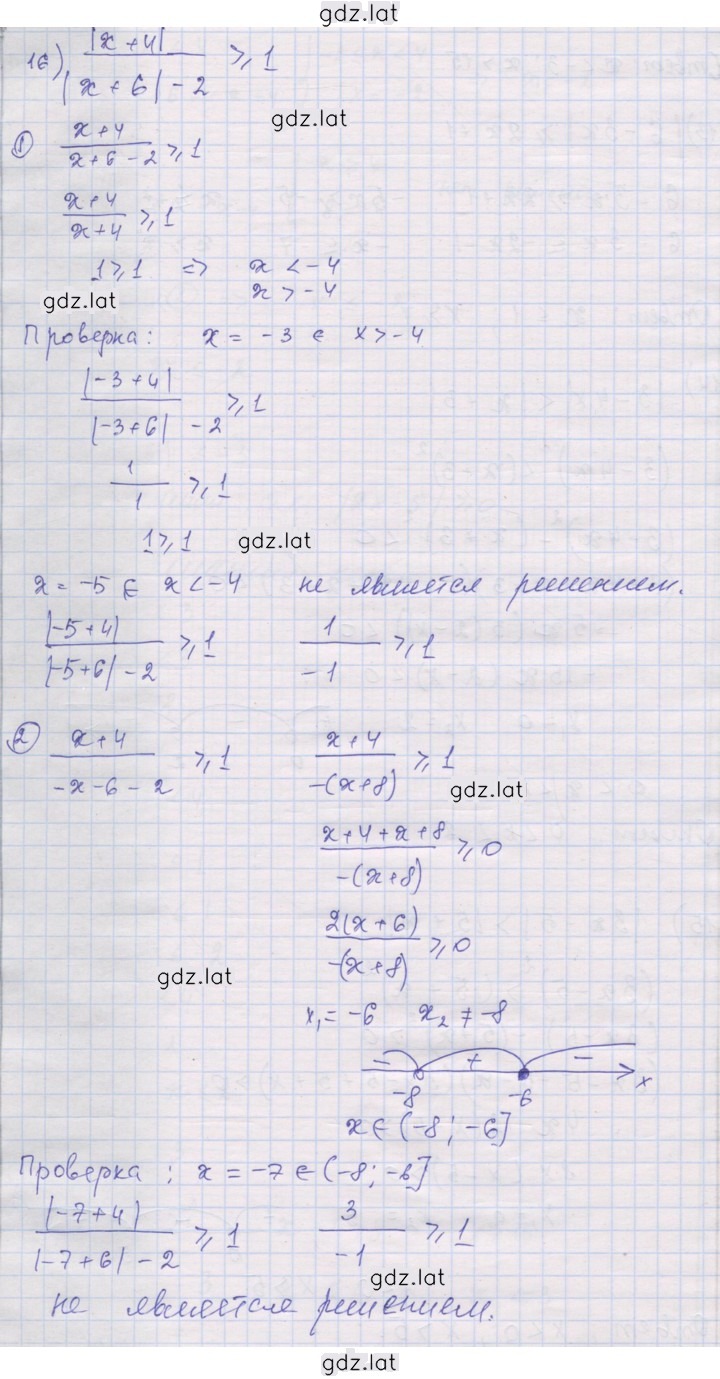 gdz.lat
16) |x+4| / (|x+6| - 2) ⩾ 1
gdz.lat
① (x+4) / (x+6-2) ⩾ 1
(x+4) / (x+4) ⩾ 1
1 ⩾ 1 => x < -4
x > -4
gdz.lat
Проверка: x = -3 ∈ x > -4
|-3+4| / (|-3+6| - 2) ⩾ 1
1 / 1 ⩾ 1
1 ⩾ 1
gdz.lat
x = -5 ∈ x < -4 не является решением.
|-5+4| / (|-5+6| - 2) ⩾ 1 1 / -1 ⩾ 1
② (x+4) / (-x-6-2) ⩾ 1 (x+4) / -(x+8) ⩾ 1
gdz.lat
(x+4+x+8) / -(x+8) ⩾ 0
2(x+6) / -(x+8) ⩾ 0
gdz.lat
x₁ = -6 x₂ ≠ -8
- + -
-8 -6 x
x ∈ (-8; -6]
Проверка; x = -7 ∈ (-8; -6]
|-7+4| / (|-7+6| - 2) ⩾ 1 3 / -1 ⩾ 1
gdz.lat
не является решением.
gdz.lat